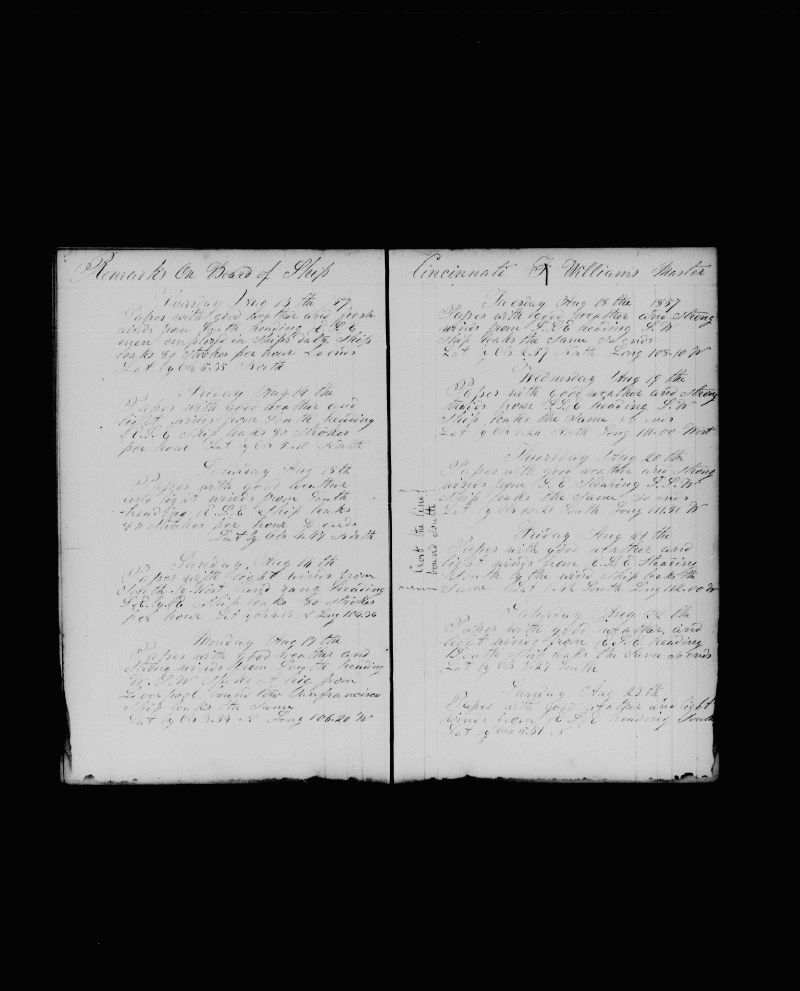 Remarks On Board of Ship
Thursday Aug 13 th 57
Passes with good weather and fresh
winds from South, heading E S E
men employed in Ships duty, Ship
leaks 80 Strokes per hour So ends
Lat by Obs 5.35 North
Friday Aug 14 the
Passes with good weather and
light winds from South heading
E S E Ship leaks 80 Strokes
per hour Lat by Obs North
Saturday Aug 15 th
Passes with good weather
and light winds from South
heading E S E Ship leaks
80 Strokes per hour So ends
Lat by Obs 4.47 North
Sunday Aug 16 th
Passes with light winds from
South heading
Ship leaks 80 Strokes
per hour Lat N Long 104.36
Monday Aug 17 the
Passes with good weather and
Strong winds from South heading
W. S. W Spoke A brig from
Liverpool bound to Sanfrancisco
Ship leaks the Same
Lat by Obs 3.54 N Long 106.20 W
Cincinnati Williams Master
Tuesday Aug 18 the 1857
Passes with good weather and Strong
winds from S. S. E heading S. W
Ship leaks the Same So ends
Lat by Obs 2.51 North Long 108.10 W
Wednesday Aug 19 the
Passes with good weather and Strong
trades from S. S. E heading S. W
Ship leaks the Same So ends
Lat by Obs 1.20 North Long 110.00 West
Thursday Aug 20 the
Passes with good weather and Strong
winds from S. E Heading S. S. W
Ship leaks the Same So ends
Lat by Obs 00.21 South Long 111.31 W
Crost the line
bound South
Friday Aug 21 the
Passes with good weather and
light winds from E. S. E Stearing
South by the wind Ship leaks the
Same Lat South Long 112.00 W
Saturday Aug 22 the
Passes with good weather and
light winds from E. S. E heading
South Ship leaks the Same So ends
Lat by Obs 3.27 South
Sunday Aug 23 th
Passes with good weather and light
winds from E S. E heading South
Lat by Obs 5.51